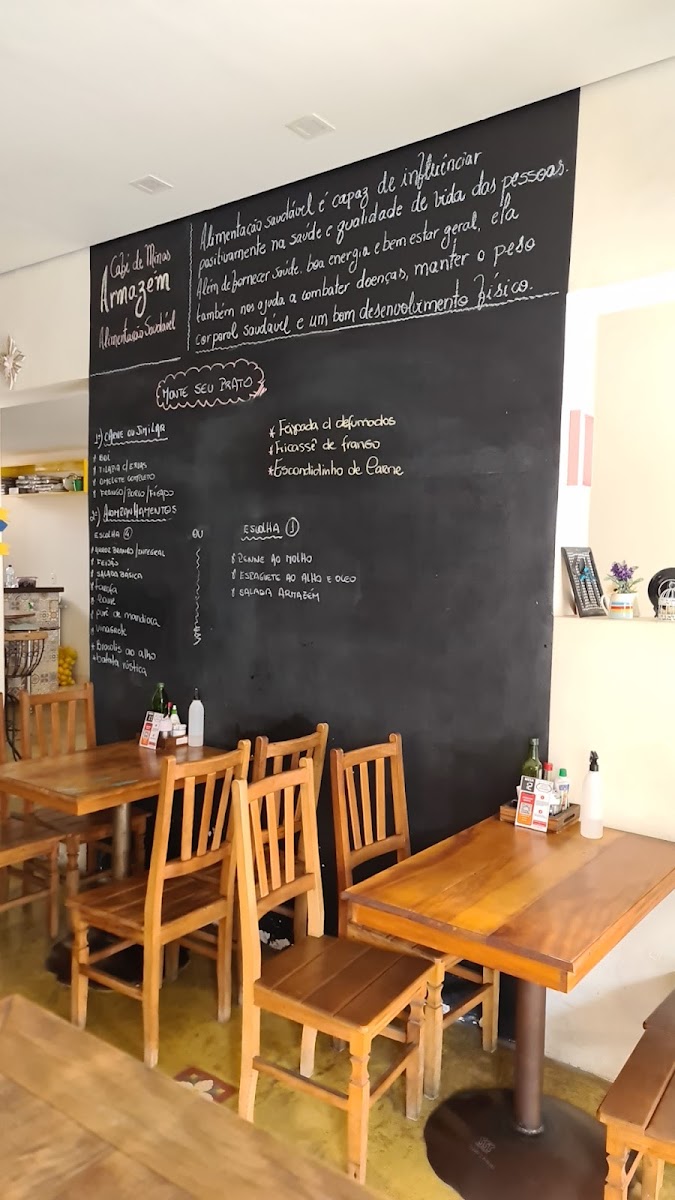 Café de Minas
Armazém
Alimentação Saudável
Alimentação saudável é capaz de influênciar
positivamente na saúde e qualidade de vida das pessoas.
Além de fornecer saúde, boa energia e bem estar geral, ela
também nos ajuda a combater doenças, manter o peso
corporal saudável e um bom desenvolvimento físico.
MONTE SEU PRATO
1º) CARNE OU SIMILAR
BOI
TILAPIA C/ERVAS
OMELETE COMPLETO
FRANGO/PORCO/FÍGADO
2º) ACOMPANHAMENTOS
ESCOLHA 4
ARROZ BRANCO/INTEGRAL
FEIJÃO
SALADA BÁSICA
farofa
couve
purê de mandioca
vinagrete
+ Brócolis ao alho
+ batata rústica
OU
* Feijoada c/ defumados
* Fricassê de frango
* Escondidinho de Carne
ESCOLHA 1
PENNE AO MOLHO
ESPAGUETE AO ALHO E OLEO
SALADA ARMAZÉM